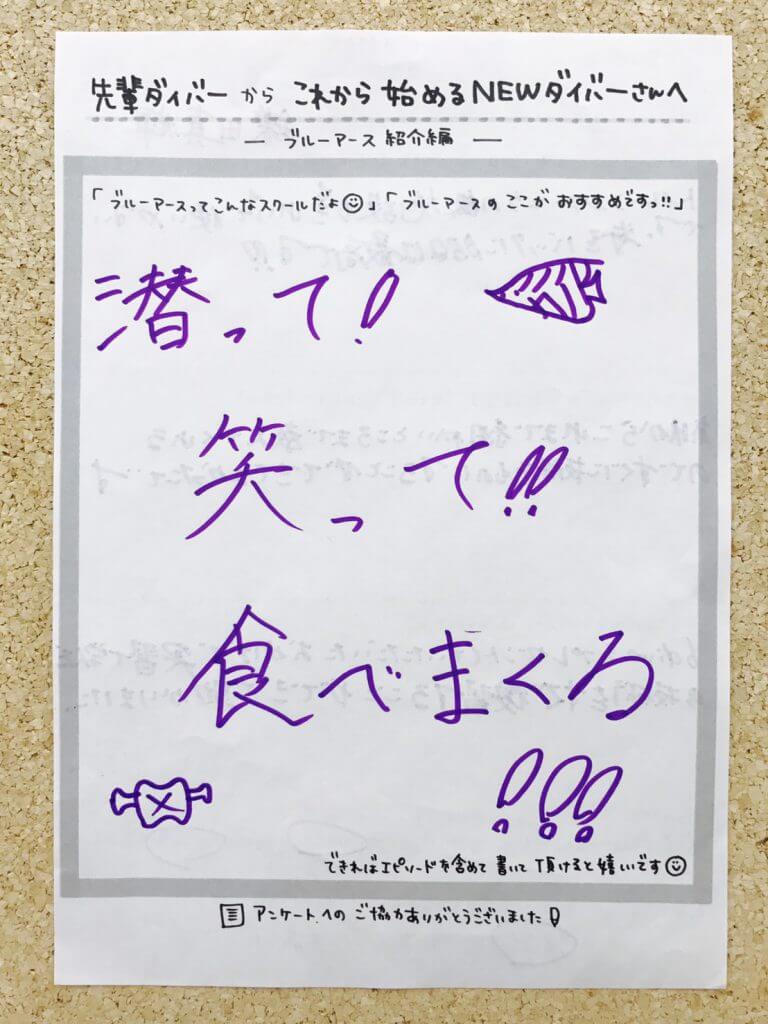 先輩ダイバー から これから 始める NEWダイバーさんへ
― ブルーアース 紹介編 ―
「ブルーアースってこんなスクールだよ☺」「ブルーアースの ここが おすすめですっ!!」
潜って!
笑って!!
食べまくろ
!!!
できればエピソードを含めて 書いて 頂けると 嬉しいです☺
アンケートへの ご協力ありがとうございました